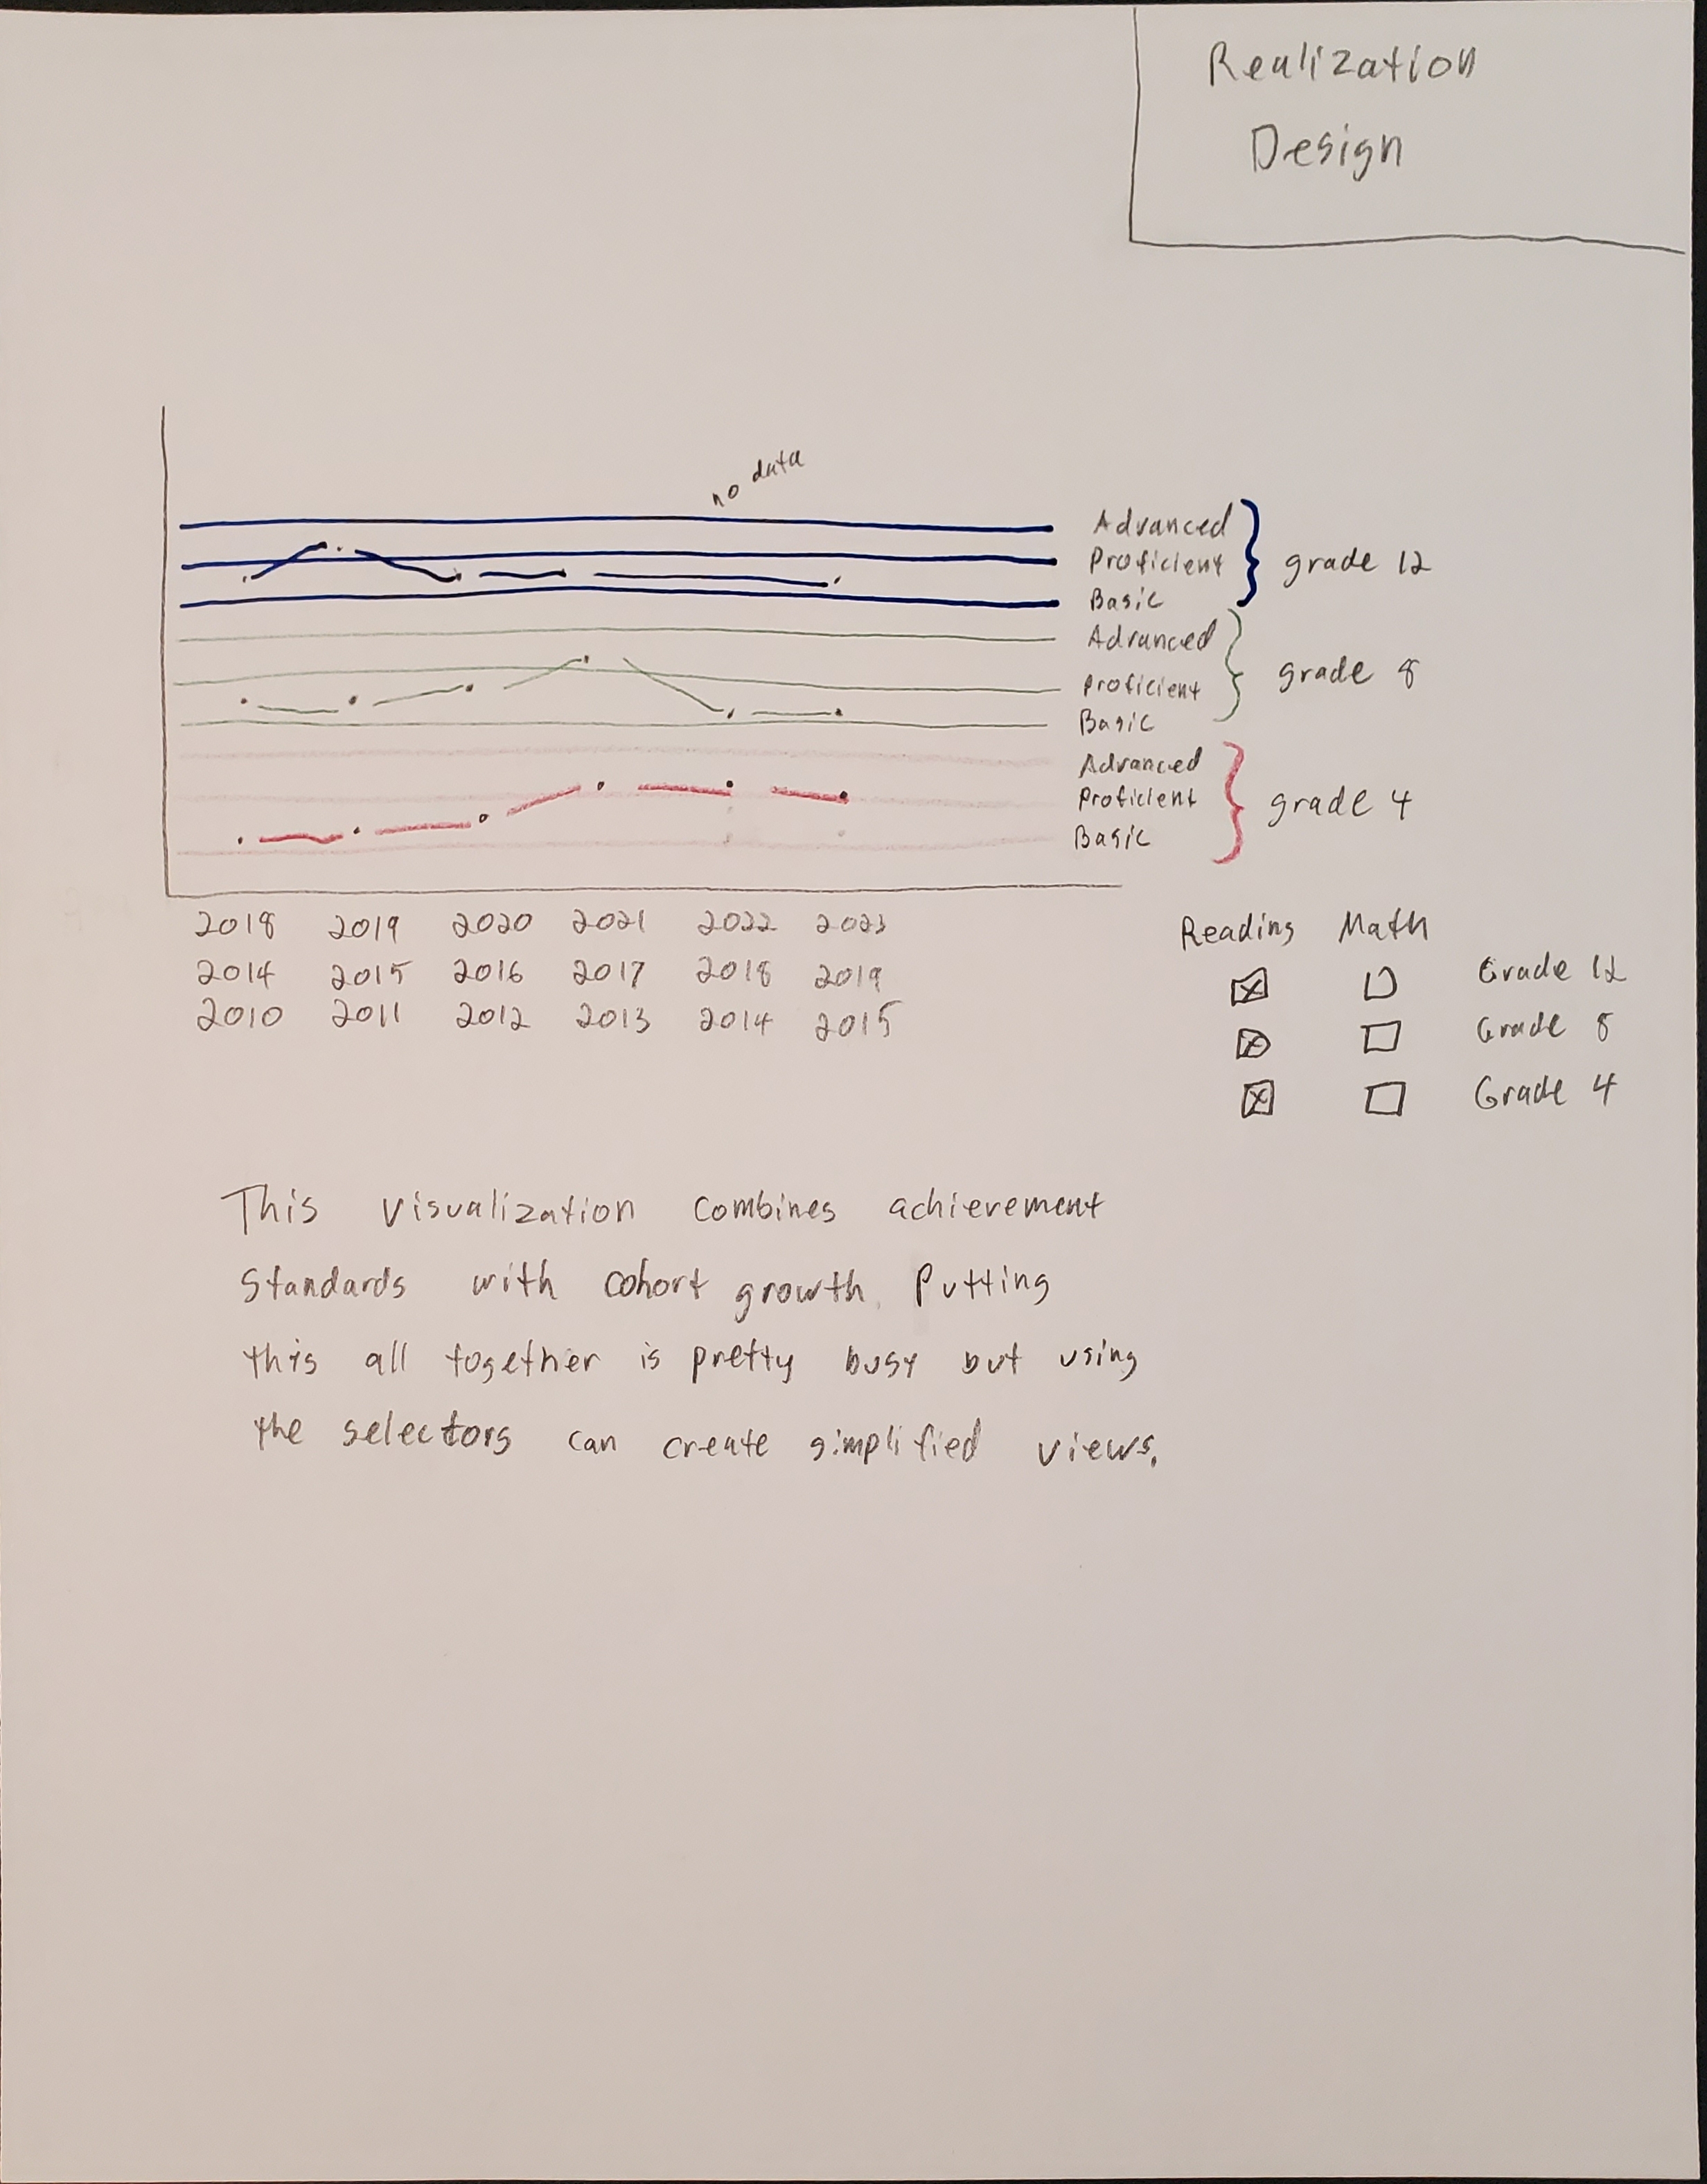 Realization
Design
no data
Advanced
Proficient
Basic
grade 12
Advanced
Proficient
Basic
grade 8
Advanced
Proficient
Basic
grade 4
2018 2019 2020 2021 2022 2023
2014 2015 2016 2017 2018 2019
2010 2011 2012 2013 2014 2015
Reading Math
Grade 12
Grade 8
Grade 4
This visualization combines achievement
standards with cohort growth. Putting
this all together is pretty busy but using
the selectors can create simplified views.